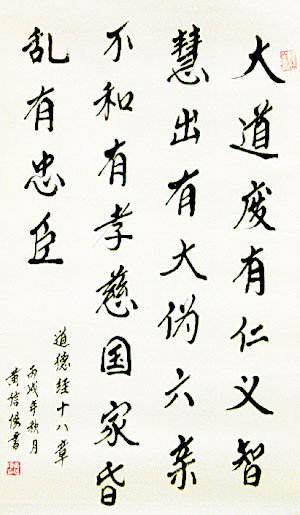 大道废有仁义智
慧出有大伪六亲
不和有孝慈国家昏
乱有忠臣
道德经十八章
丙戌年秋月
黄信書